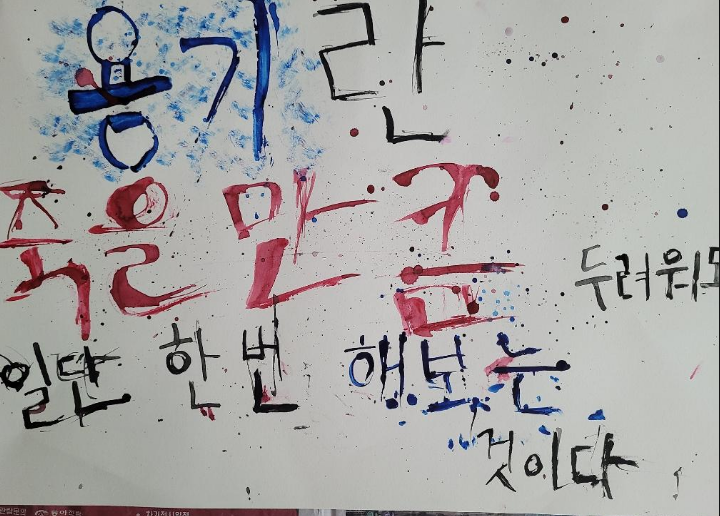 용기란
죽을만큼
두려워도
일단 한번 해보는
것이다